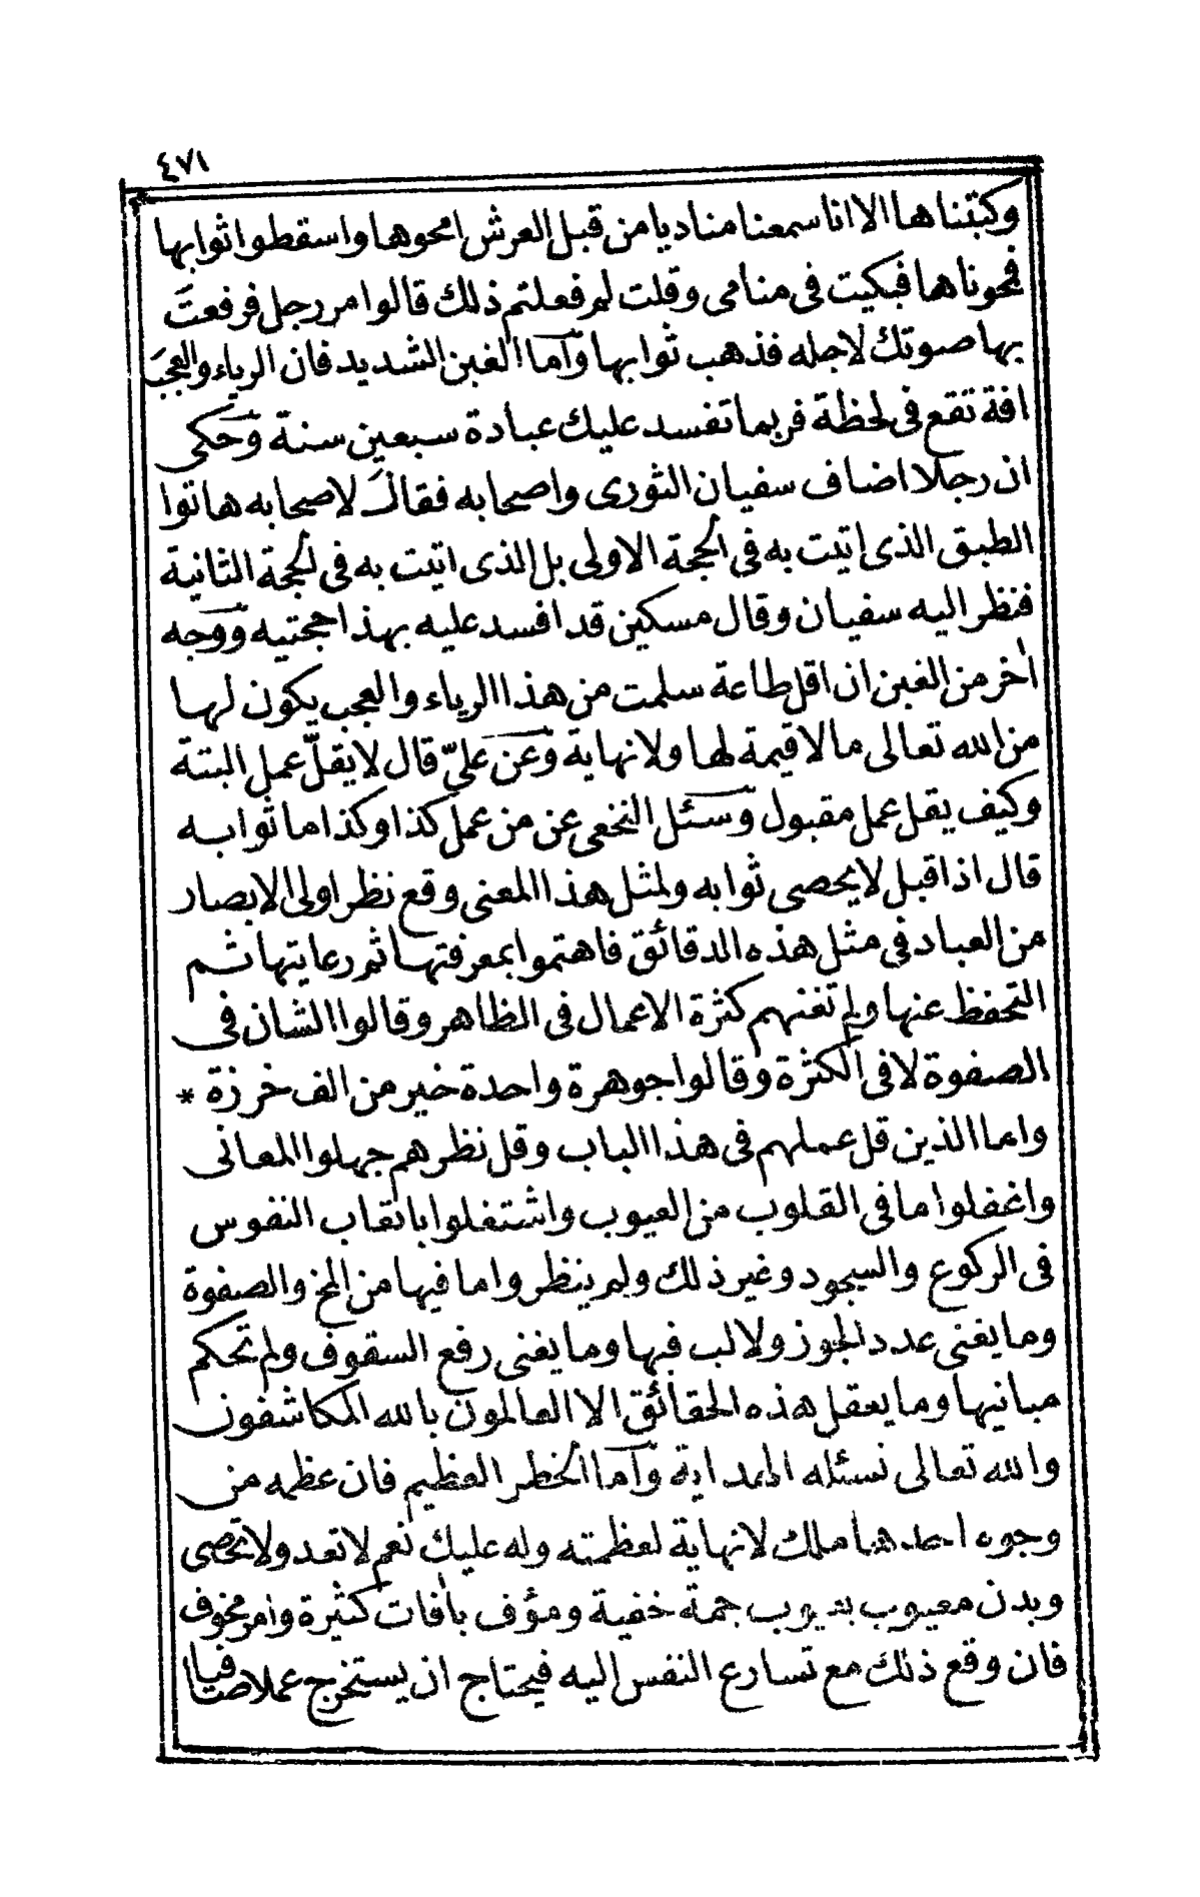 ٤٧١
وكتبناها الا انا سمعنا مناديا من قبل العرش امحوها واسقطوا ثوابها
فمحوناها فبكيت فى منامى وقلت لم فعلتم ذلك قالوا مر رجل فرفعت
بها صوتك لاجله فذهب ثوابها واما الغبن الشديد فان الرياء والعجب
افة تقع فى لحظة فربما تفسد عليك عبادة سبعين سنة وحكى
ان رجلا اضاف سفيان الثورى واصحابه فقال لاصحابه هاتوا
الطبق الذى اتيت به فى الحجة الاولى بل الذى اتيت به فى الحجة الثانية
فنظر اليه سفيان وقال مسكين قد افسد عليه بهذا حجتيه ووجه
اخر من الغبن ان اقل طاعة سلمت من هذا الرياء والعجب يكون لها
من الله تعالى ما لا قيمة لها ولا نهاية وعن علىّ قال لا يقلّ عمل البتة
وكيف يقل عمل مقبول وسئل النخعى عن من عمل كذا وكذا ما ثوابه
قال اذا قبل لا يحصى ثوابه ولمثل هذا المعنى وقع نظر اولى الابصار
من العباد فى مثل هذه الدقائق فاهتموا بمعرفتها ثم رعايتها ثم
التحفظ عنها ولم تغنهم كثرة الاعمال فى الظاهر وقالوا الشان فى
الصفوة لا فى الكثرة وقالوا جوهرة واحدة خير من الف خرزة *
واما الذين قل عملهم فى هذا الباب وقل نظرهم جهلوا المعانى
واغفلوا ما فى القلوب من العيوب واشتغلوا باتعاب النفوس
فى الركوع والسجود وغير ذلك ولم ينظروا ما فيها من المخ والصفوة
وما يغنى عدد الجوز ولا لب فيها وما يغنى رفع السقوف ولم تحكم
مبانيها وما يعقل هذه الحقائق الا العالمون بالله المكاشفون
والله تعالى نسئله الهداية واما الخطر العظيم فان عظمه من
وجوه احدها ملك لا نهاية لعظمته وله عليك نعم لا تعد ولا تحصى
وبدن معيوب بعيوب جمة خفية ومؤف بافات كثيرة وامر مخوف
فان وقع ذلك مع تسارع النفس اليه فيحتاج ان يستخرج عملا صافيا